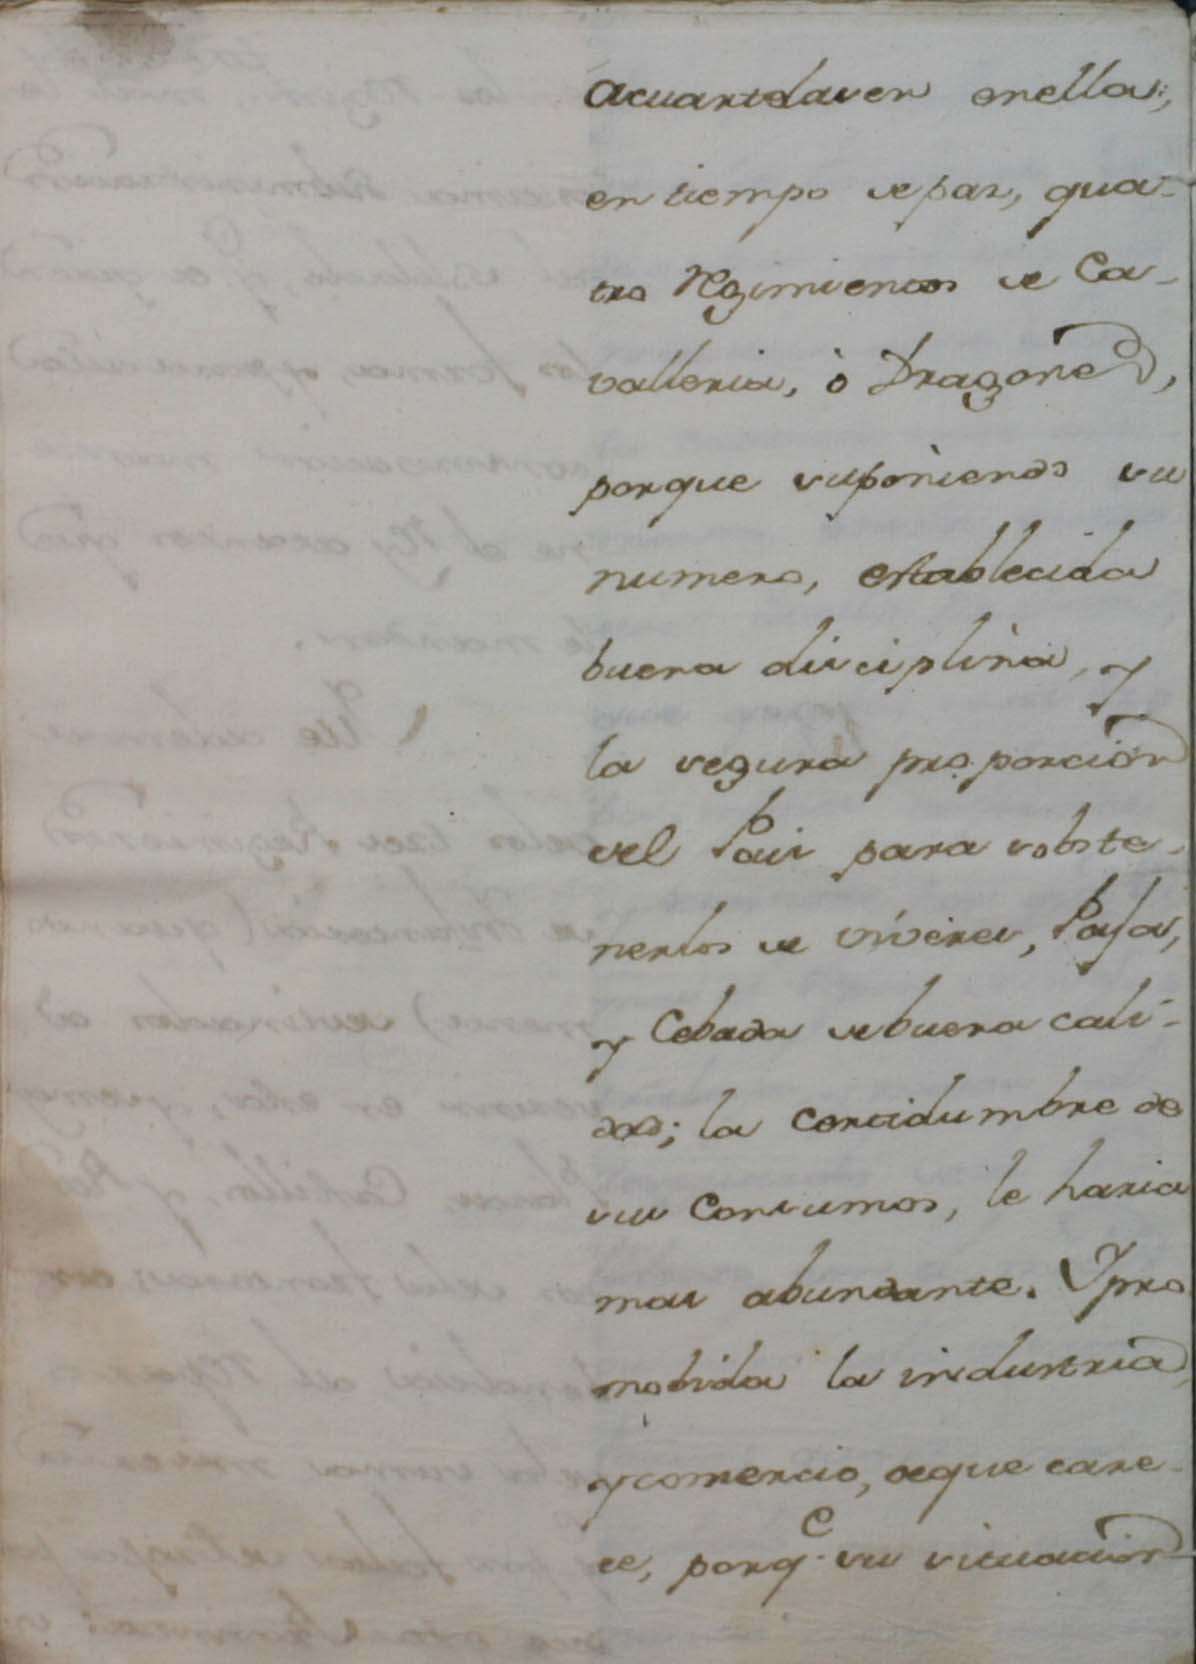 acuartelasen en ella,
en tiempo de paz, qua-
tro Regimientos de Ca-
valleria, ò Dragones,
porque suponiendo su
numero, establecida
buena disciplina, y
la segura proporcion
del Pais para sobste-
nerlos de víveres, Paja,
y Cebada de buena cali-
dad; la certidumbre de
sus consumos, le haria
mas abundante. Y pro
mobida la industria,
y comercio, de que care-
ce, porq.e su situacion